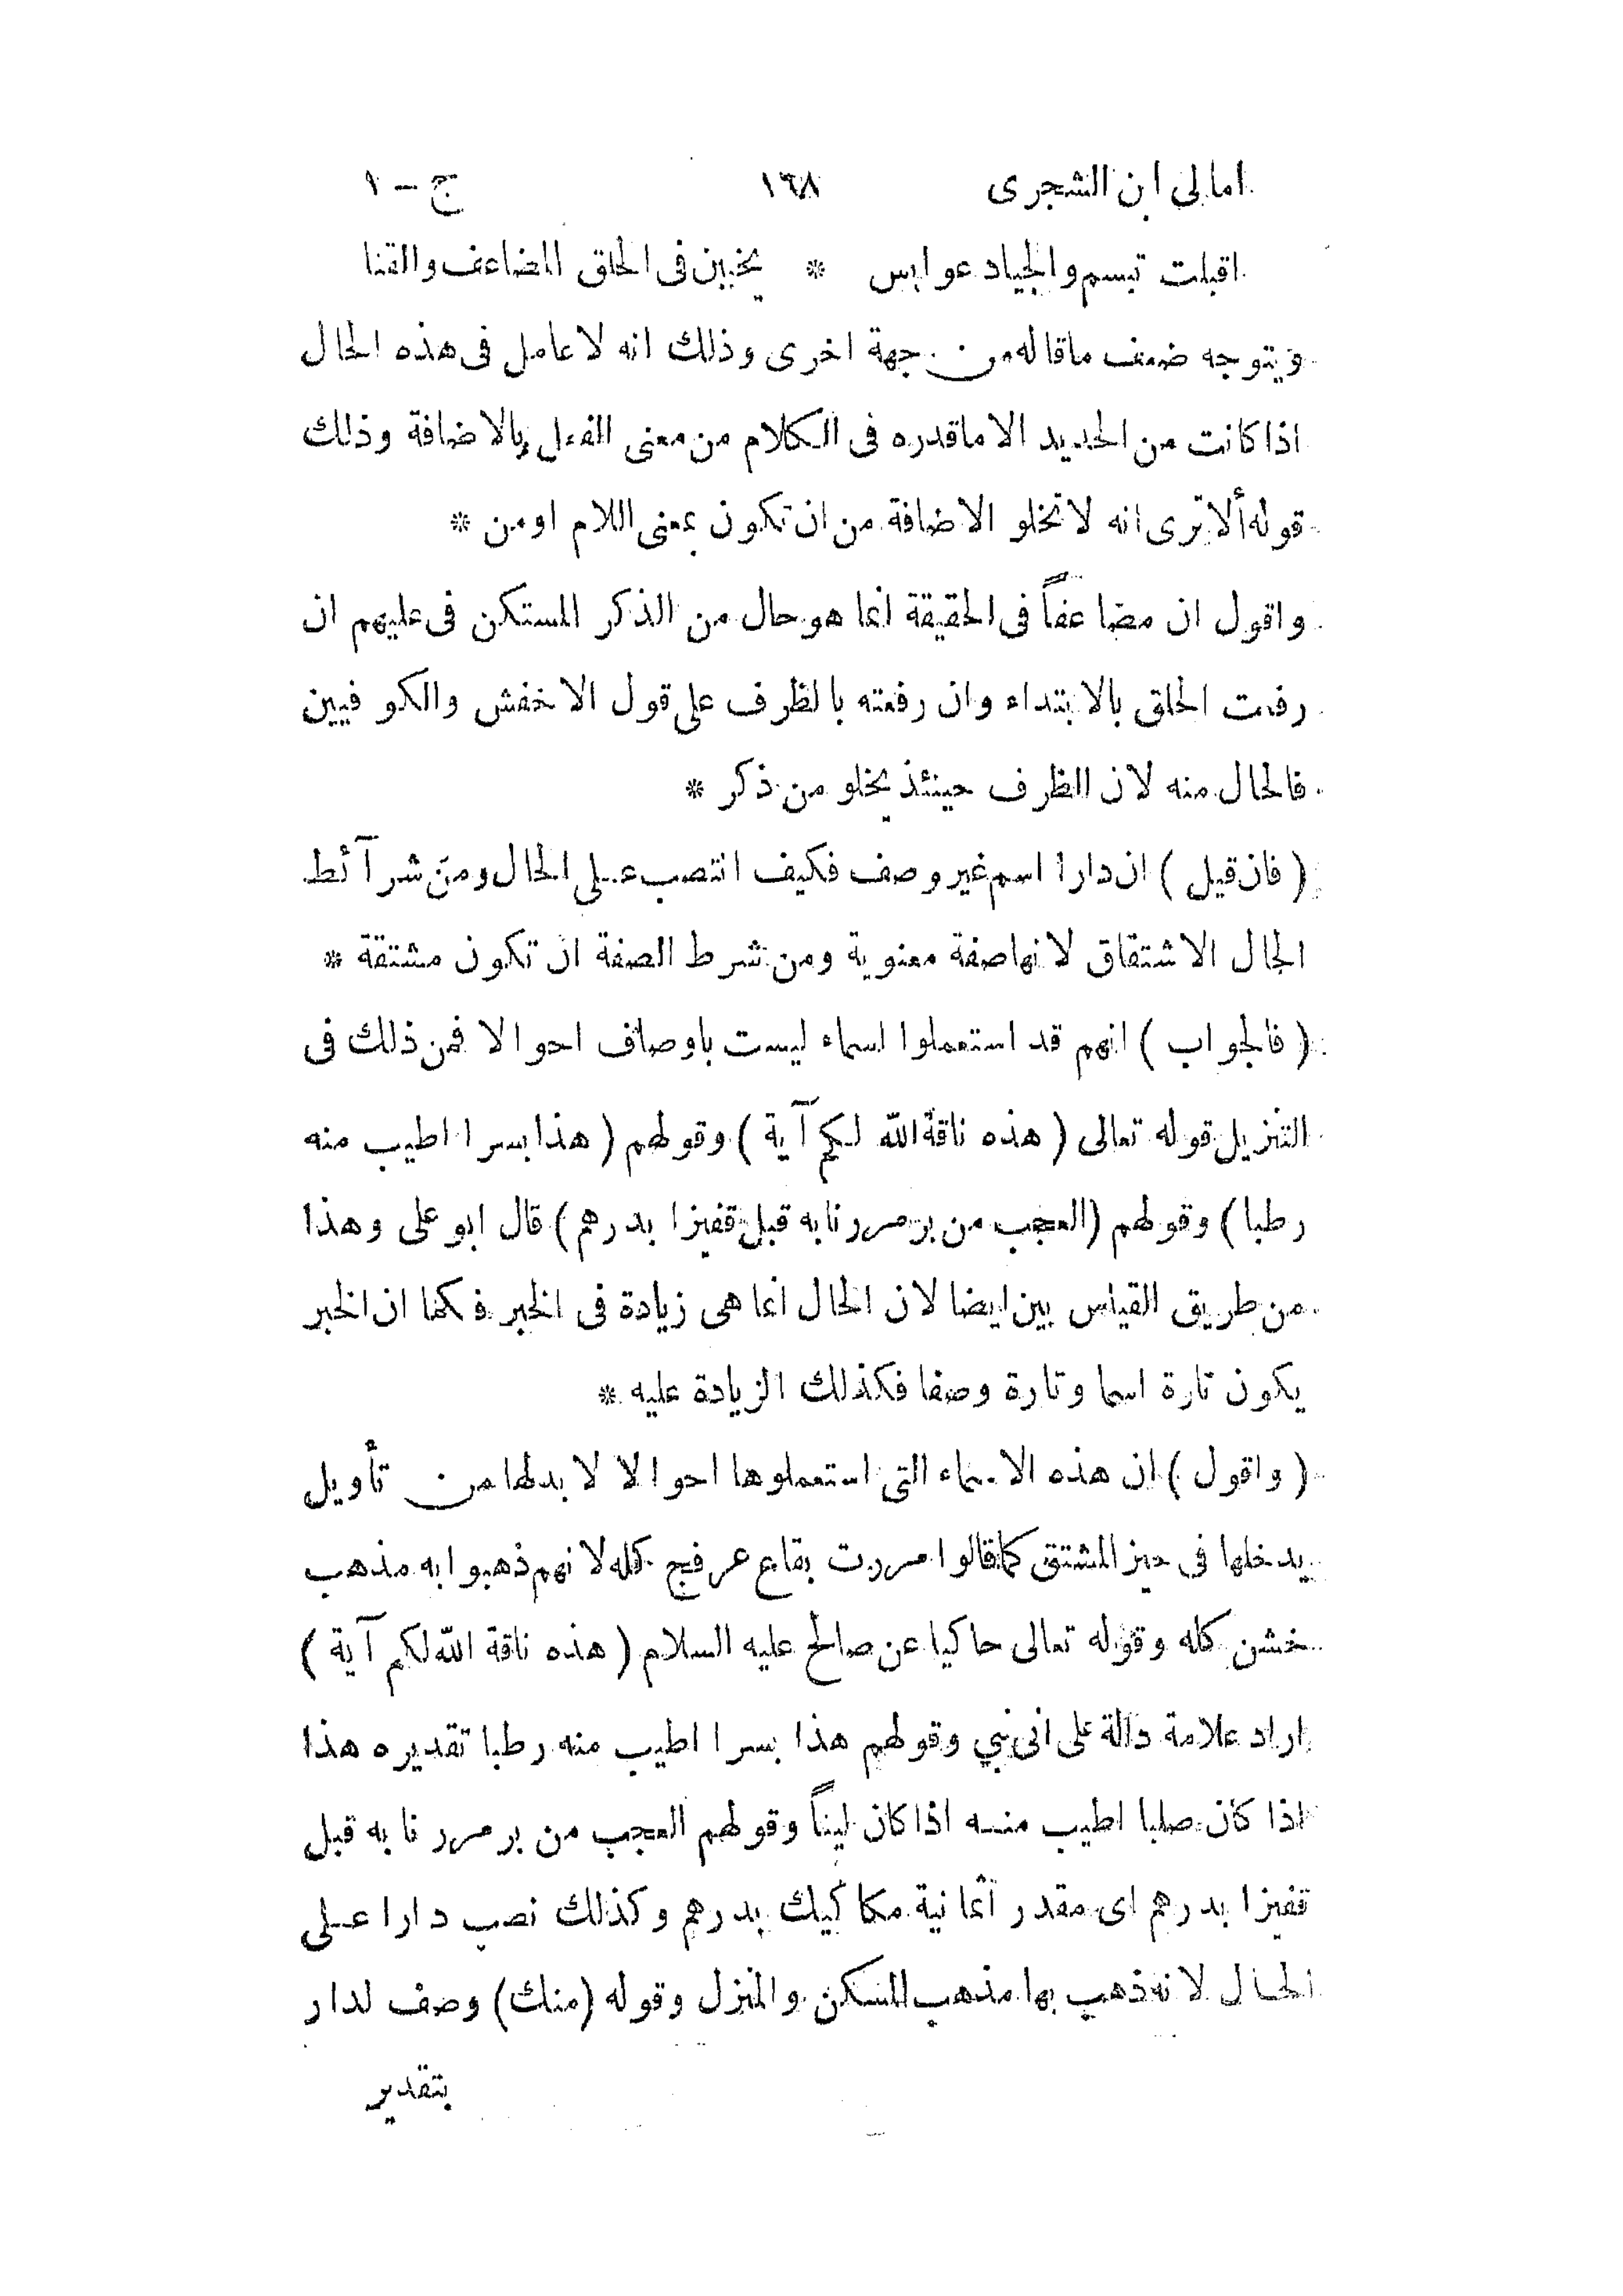 امالى ابن الشجرى ١٦٨ ج – ١
اقبلت تبسم والجياد عوابس * يخببن فى الحلق المضاعف والقنا
ويتوجه ضعف ماقاله من جهة اخرى وذلك انه لا عامل فى هذه الحال
اذا كانت من الحديد الا ماقدره فى الكلام من معنى الفعل بالاضافة وذلك
قوله ألا ترى انه لا تخلو الاضافة من ان تكون بمعنى اللام او من *
واقول ان مضاعفاً فى الحقيقة انما هو حال من الذكر المستكن فى عليهم ان
رفعت الحلق بالابتداء وان رفعته بالظرف على قول الاخفش والكوفيين
فالحال منه لان الظرف حينئذ يخلو من ذكر *
( فان قيل ) ان دارا اسم غير وصف فكيف انتصب على الحال ومن شرآئط
الحال الاشتقاق لانها صفة معنوية ومن شرط الصفة ان تكون مشتقة *
( فالجواب ) انهم قد استعملوا اسماء ليست باوصاف احوالا فمن ذلك فى
التنزيل قوله تعالى ( هذه ناقة الله لكم آية ) وقولهم ( هذا بسرا اطيب منه
رطبا ) وقولهم (العجب من بر مررنا به قبل قفيزا بدرهم ) قال ابو على وهذا
من طريق القياس بين ايضا لان الحال انما هى زيادة فى الخبر فكما ان الخبر
يكون تارة اسما وتارة وصفا فكذلك الزيادة عليه *
( واقول ) ان هذه الاسماء التى استعملوها احوالا لا بد لها من تأويل
يدخلها فى حيز المشتق كما قالوا مررت بقاع عرفج كله لانهم ذهبوا به مذهب
خشن كله وقوله تعالى حاكيا عن صالح عليه السلام ( هذه ناقة الله لكم آية )
اراد علامة دالة على انى نبي وقولهم هذا بسرا اطيب منه رطبا تقديره هذا
اذا كان صلبا اطيب منه اذا كان ليناً وقولهم العجب من بر مررنا به قبل
قفيزا بدرهم اى مقدر اثمانية مكاكيك بدرهم وكذلك نصب دارا على
الحال لانه ذهب بها مذهب المسكن والمنزل وقوله (منك) وصف لدار
بتقدير